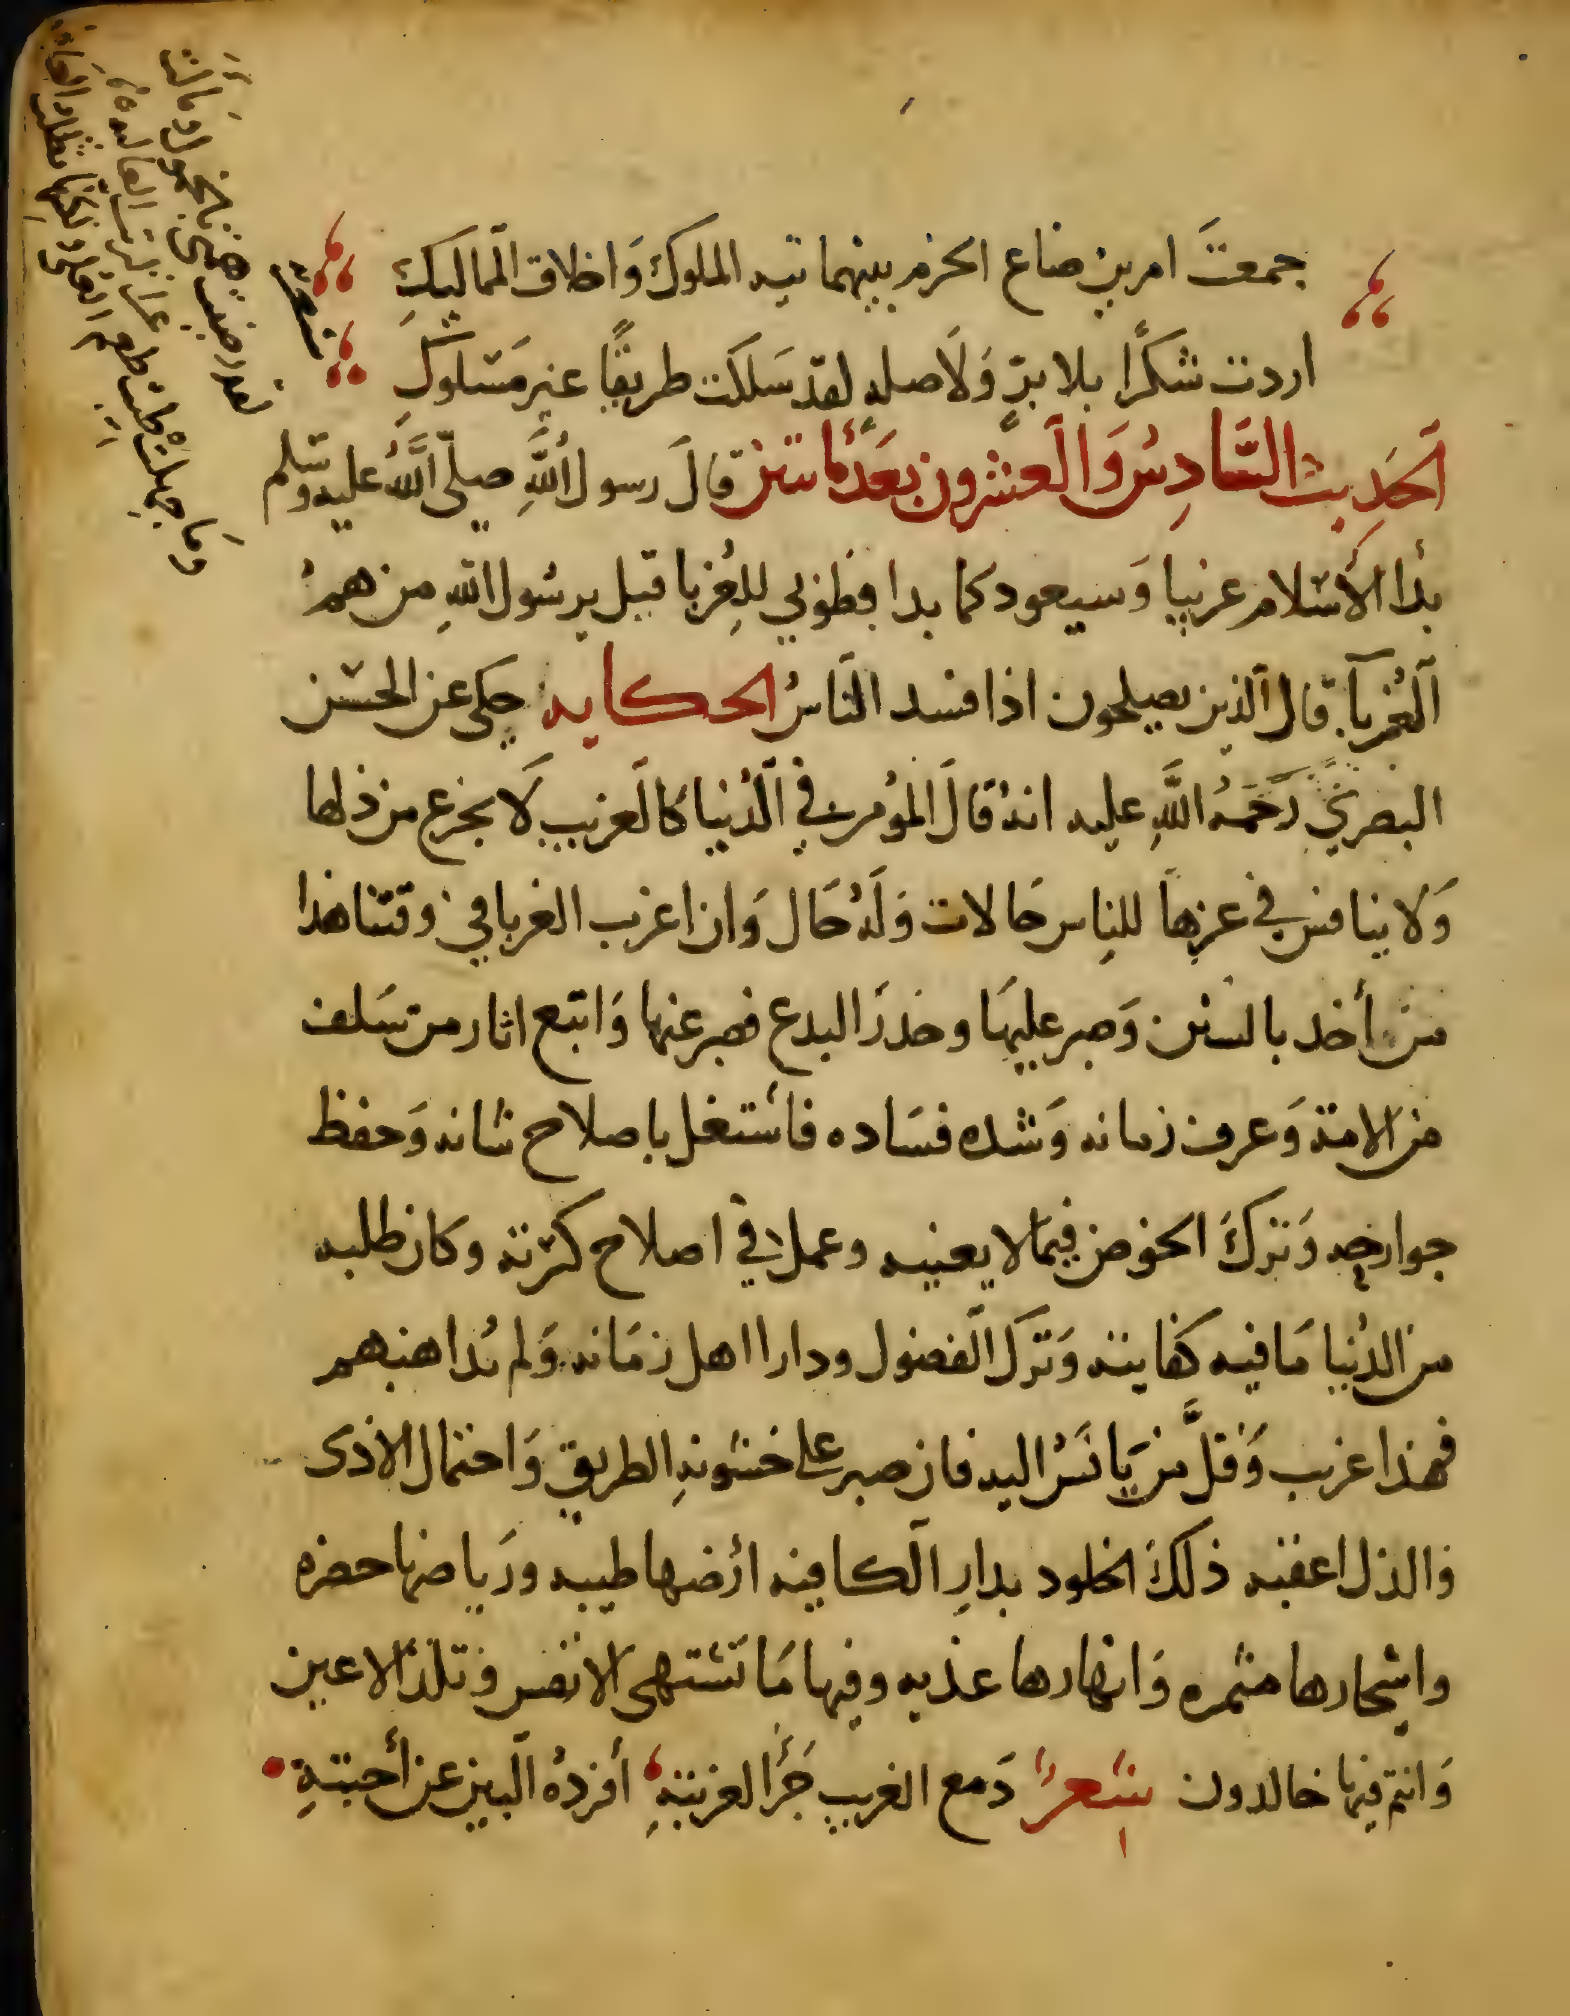 جمعتَ امرين ضاع الحزم بينهما تيه الملوك وَاخلاق المماليكِ
اردت شكرًا بلا برّ وَلَا صله لقد سَلكت طريقًا غير مَسْلوكِ
اَلحَدِيث السَّادِسُ وَالعشرون بَعَدْ مائتين قالَ رسول اللَّهِ صلّى اللَّهُ عليه وسَلم
بدأ الأسْلام غريبا وَسيعود كما بدا فطوبي للغُربا قيل يرسُول اللهِ من همُ
اَلغُرَبآ قال الذين يصلحون اذا فسد النَاسُ الحكايه حكي عن الحسَن
البصريّ رَحمَهُ اللَّهِ عليه انهُ قالَ المؤمن في الدُنيا كالغريب لَا يجزع من ذلها
وَلا ينافس في عزها للناس حَالات وَلهُ حَال وَان اغرب الغربا في وقتنا هذا
من أخذ بالسنن وَصبر عليهَا وحذرَ البدع فصبر عنها وَاتبع اثار من سَلف
من الامة وَعرف زمانه وَشده فسَاده فاشتغل باصلاح شانه وَحفظ
جوارحه وَتركَ الخوض فيما لا يعنيه وعمل في اصلاح كسرته وكان طلبه
من الدُنيا مَا فيه كفايته وَترك الفضول ودارا اهل زمَانه وَلم يُداهنهم
فهذا غريب وَقلَّ من يَانسُ اليه فان صبر على خشونهِ الطريق وَاحتمال الاذى
والذل اعقبه ذلكَ الخلود بدارِ الكافيه ارضها طيبه ورَياضها خضره
واشجارها مثمره وَانهارها عذبه وفيها مَا تَشتهى الانفس وتلذ الاعين
وَانتم فيها خالدون شعرُ دَمع الغريب جَرَا لغربتهِ أفردهُ البين عن أحبتهِ
شعر
لقد رضيت همتى بالخمول
وَمَا جهلتْ طيب طعم العلى